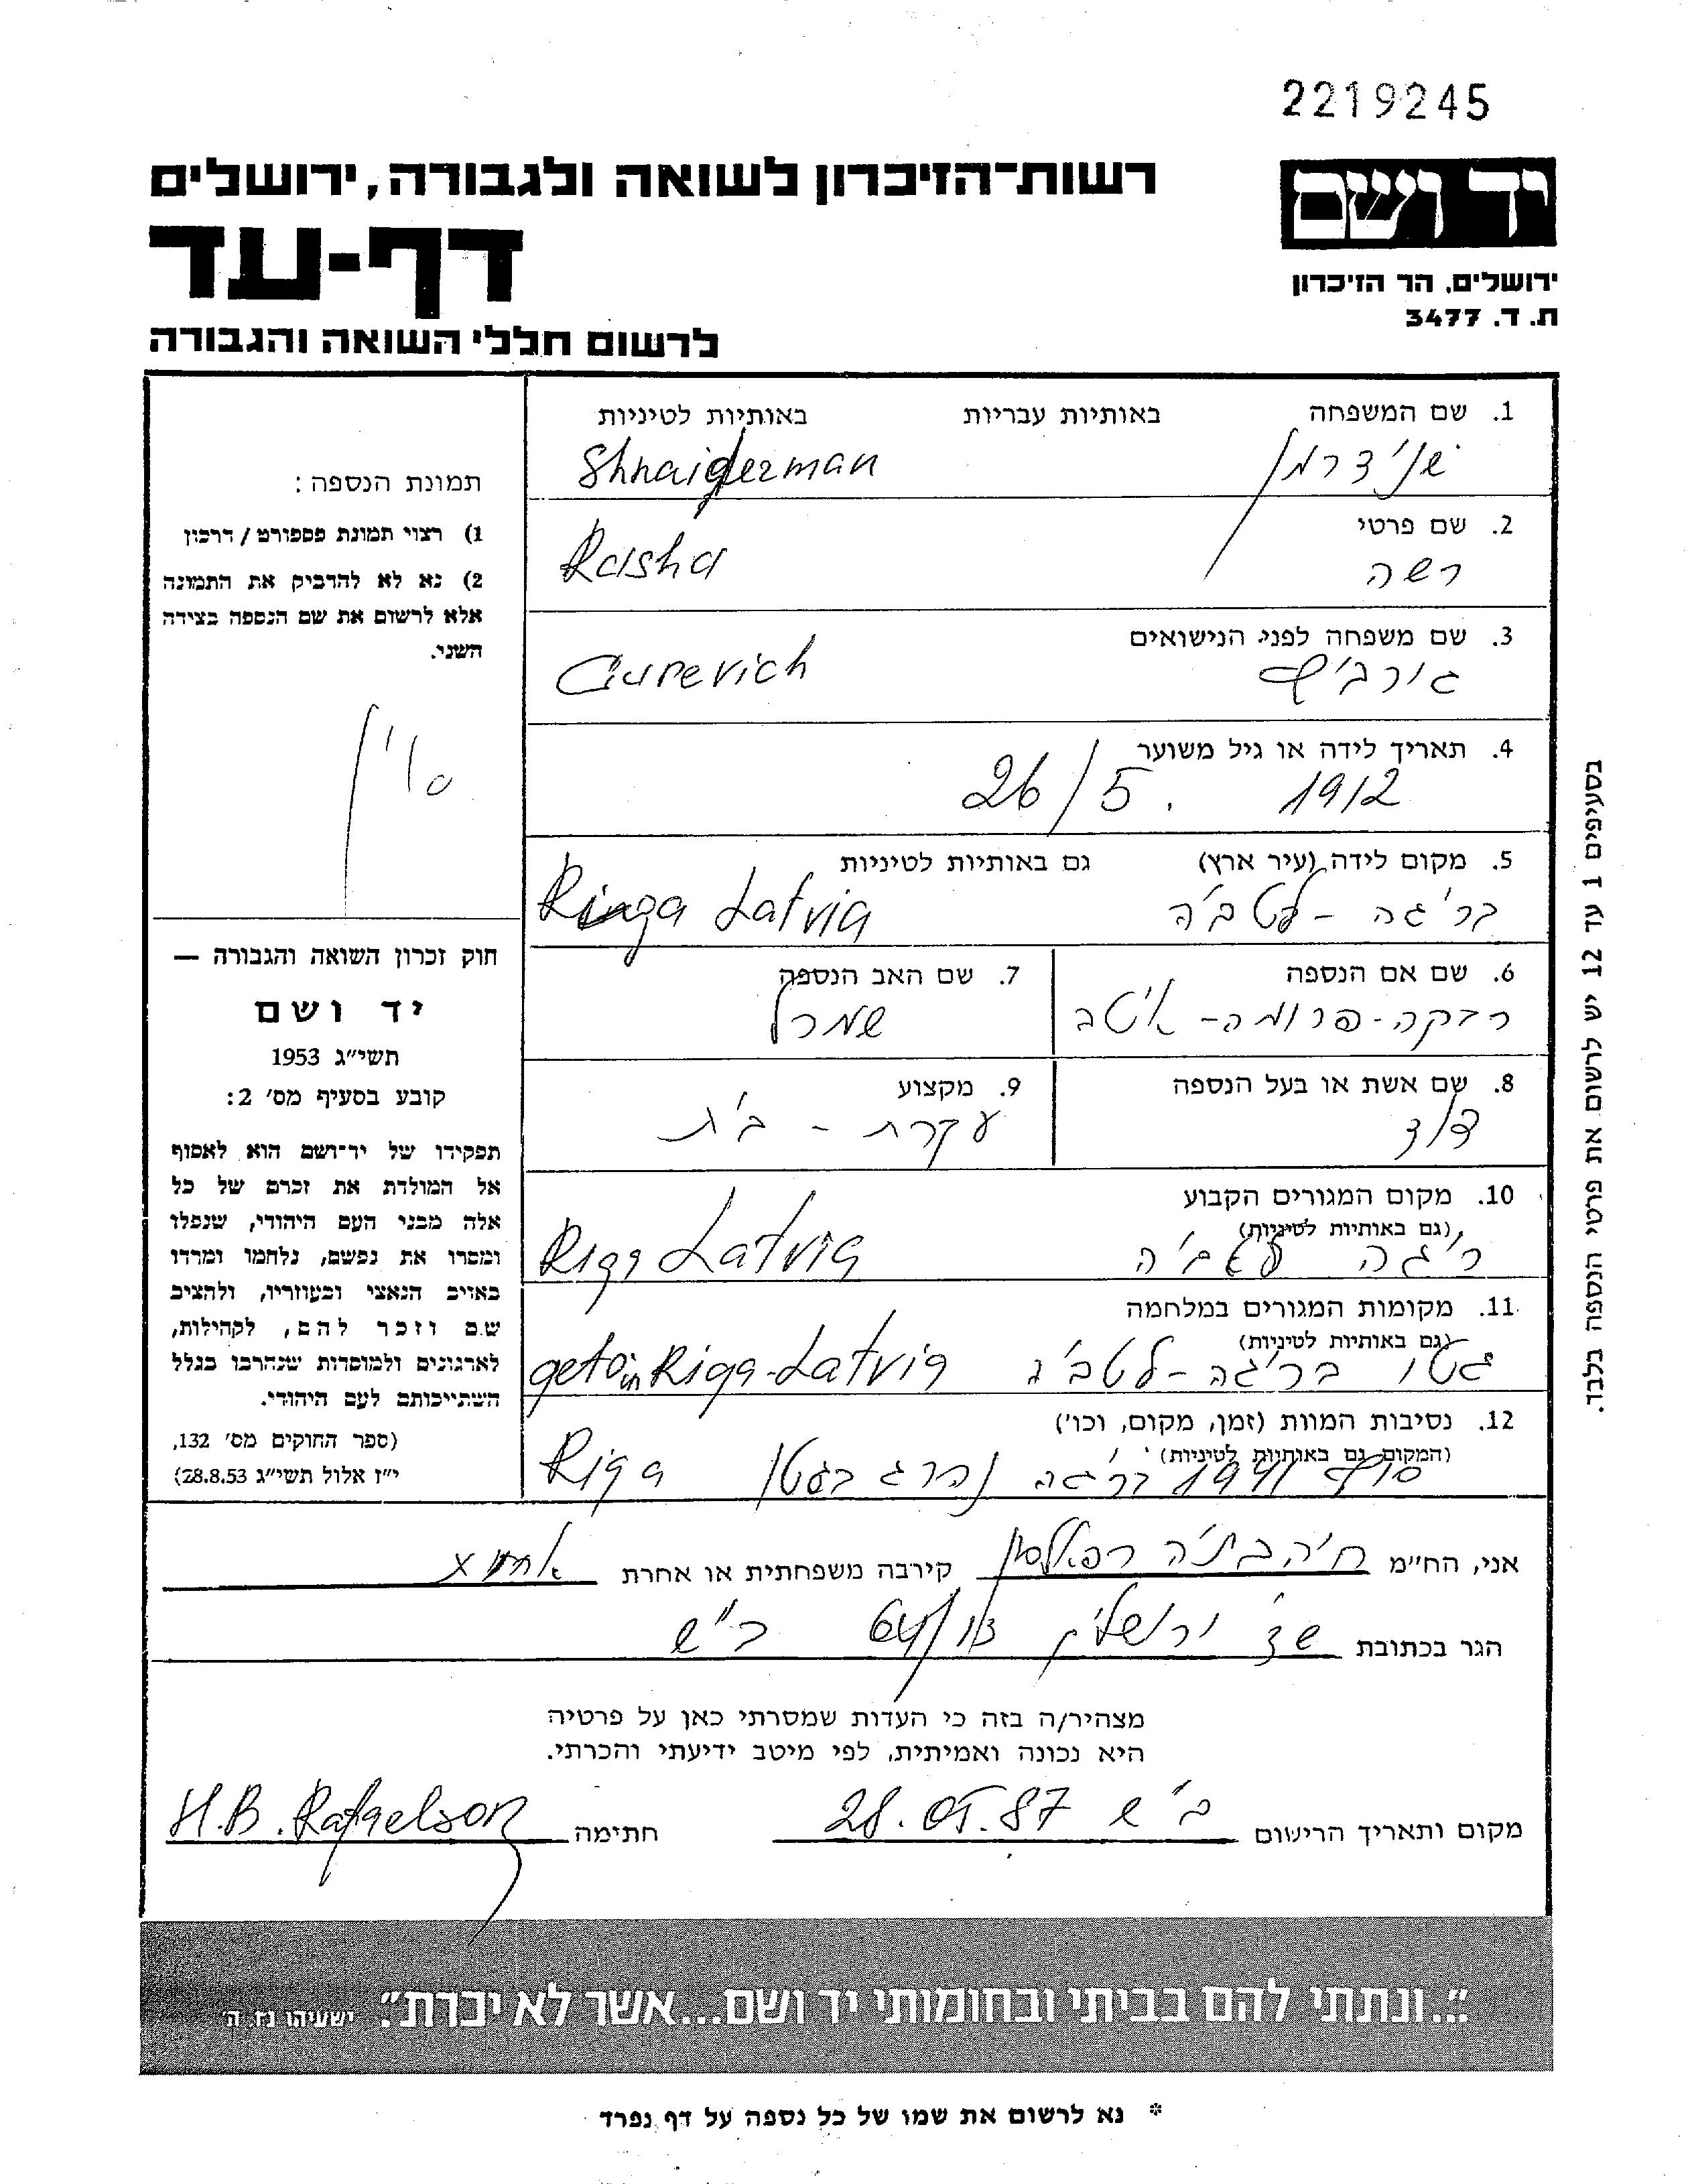 2219245
רשות-הזיכרון לשואה ולגבורה, ירושלים
יד ושם
דף-עד
ירושלים, הר הזיכרון
ת. ד. 3477
לרשום חללי השואה והגבורה
1. שם המשפחה באותיות עבריות באותיות לטיניות
שניידרמן Shnaiderman
2. שם פרטי
רשה Rasha
3. שם משפחה לפני הנישואים
גורביץ Gurevich
4. תאריך לידה או גיל משוער
26/5. 1912
5. מקום לידה (עיר ארץ) גם באותיות לטיניות
בריגה - לטביה Riga Latvia
6. שם אם הנספה
רבקה - פרומה - איטה
7. שם האב הנספה
שמרל
8. שם אשת או בעל הנספה
דוד
9. מקצוע
עקרת - בית
10. מקום המגורים הקבוע
(גם באותיות לטיניות)
ריגה לטביה Riga Latvia
11. מקומות המגורים במלחמה
(גם באותיות לטיניות)
גטו בריגה - לטביה geto in Riga - Latvia
12. נסיבות המוות (זמן, מקום, וכו')
(המקום גם באותיות לטיניות)
סוף 1941 בריגה נהרג בגטו Riga
תמונת הנספה:
1) רצוי תמונת פספורט / דרכון
2) נא לא להדביק את התמונה
אלא לרשום את שם הנספה בצידה
השני.
חוק זכרון השואה והגבורה —
יד ושם
תשי״ג 1953
קובע בסעיף מס' 2:
תפקידו של יד־ושם הוא לאסוף
אל המולדת את זכרם של כל
אלה מבני העם היהודי, שנפלו
ומסרו את נפשם, נלחמו ומרדו
באויב הנאצי ובעוזריו, ולהציב
שם וזכר להם, לקהילות,
לארגונים ולמוסדות שנחרבו בגלל
השתייכותם לעם היהודי.
(ספר החוקים מס' 132,
י״ז אלול תשי״ג 28.8.53)
בסעיפים 1 עד 12 יש לרשום את פרטי הנספה בלבד.
אני, הח״מ חיה בתיה רפאלסון קירבה משפחתית או אחרת
הגר בכתובת שד' ירושלים 64/13 ב״ש
מצהיר/ה בזה כי העדות שמסרתי כאן על פרטיה
היא נכונה ואמיתית, לפי מיטב ידיעתי והכרתי.
מקום ותאריך הרישום ב״ש 28.05.87 חתימה H.B. Rafaelson
"...ונתתי להם בביתי ובחומותי יד ושם...אשר לא יכרת". ישעיהו נו, ה'
* נא לרשום את שמו של כל נספה על דף נפרד